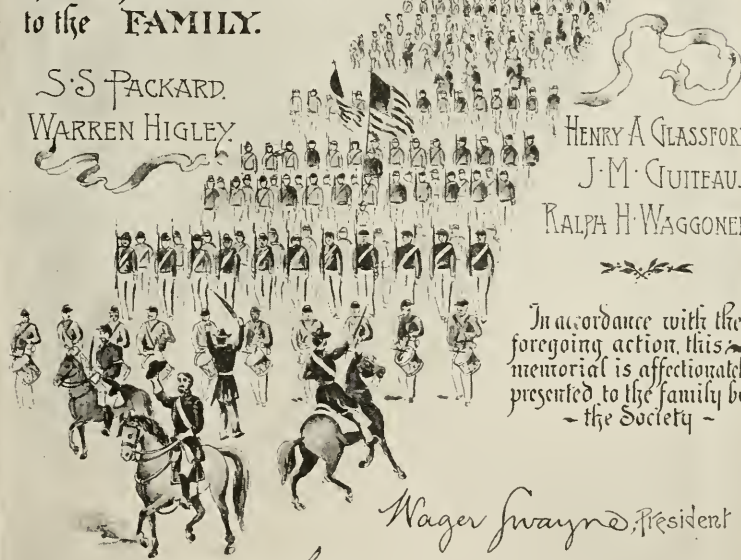 to the FAMILY.
S. S PACKARD.
WARREN HIGLEY.
HENRY A GLASSFOR
J. M. GUITEAU.
RALPH H. WAGGONE
In accordance with the
foregoing action, this
memorial is affectionatel
presented to the family b
~ the Society ~
Wager Swayne, President